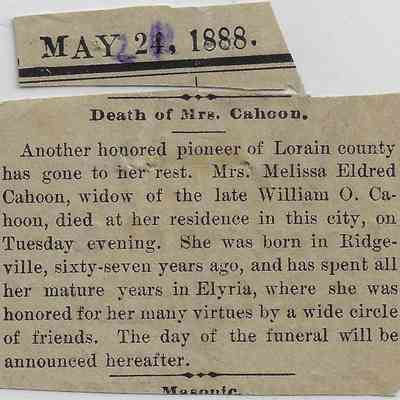 MAY 24, 1888.
Death of Mrs. Cahoon.
Another honored pioneer of Lorain county
has gone to her rest. Mrs. Melissa Eldred
Cahoon, widow of the late William O. Ca-
hoon, died at her residence in this city, on
Tuesday evening. She was born in Ridge-
ville, sixty-seven years ago, and has spent all
her mature years in Elyria, where she was
honored for her many virtues by a wide circle
of friends. The day of the funeral will be
announced hereafter.
Masonic.